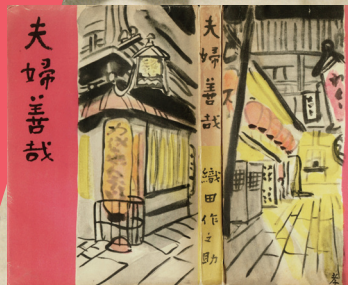 夫婦善哉
夫婦善哉 織田作之助